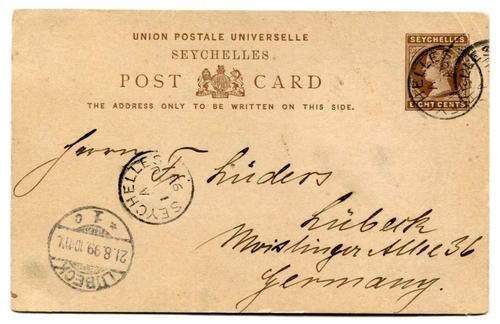 UNION POSTALE UNIVERSELLE
SEYCHELLES
POST CARD
THE ADDRESS ONLY TO BE WRITTEN ON THIS SIDE.
SEYCHELLES
EIGHT CENTS
Herrn Fr. Lüders
SEYCHELLES
A
Lübeck
Moislinger Allee 36
Germany.
LÜBECK
21.8.99.10-11V.
* 1 c